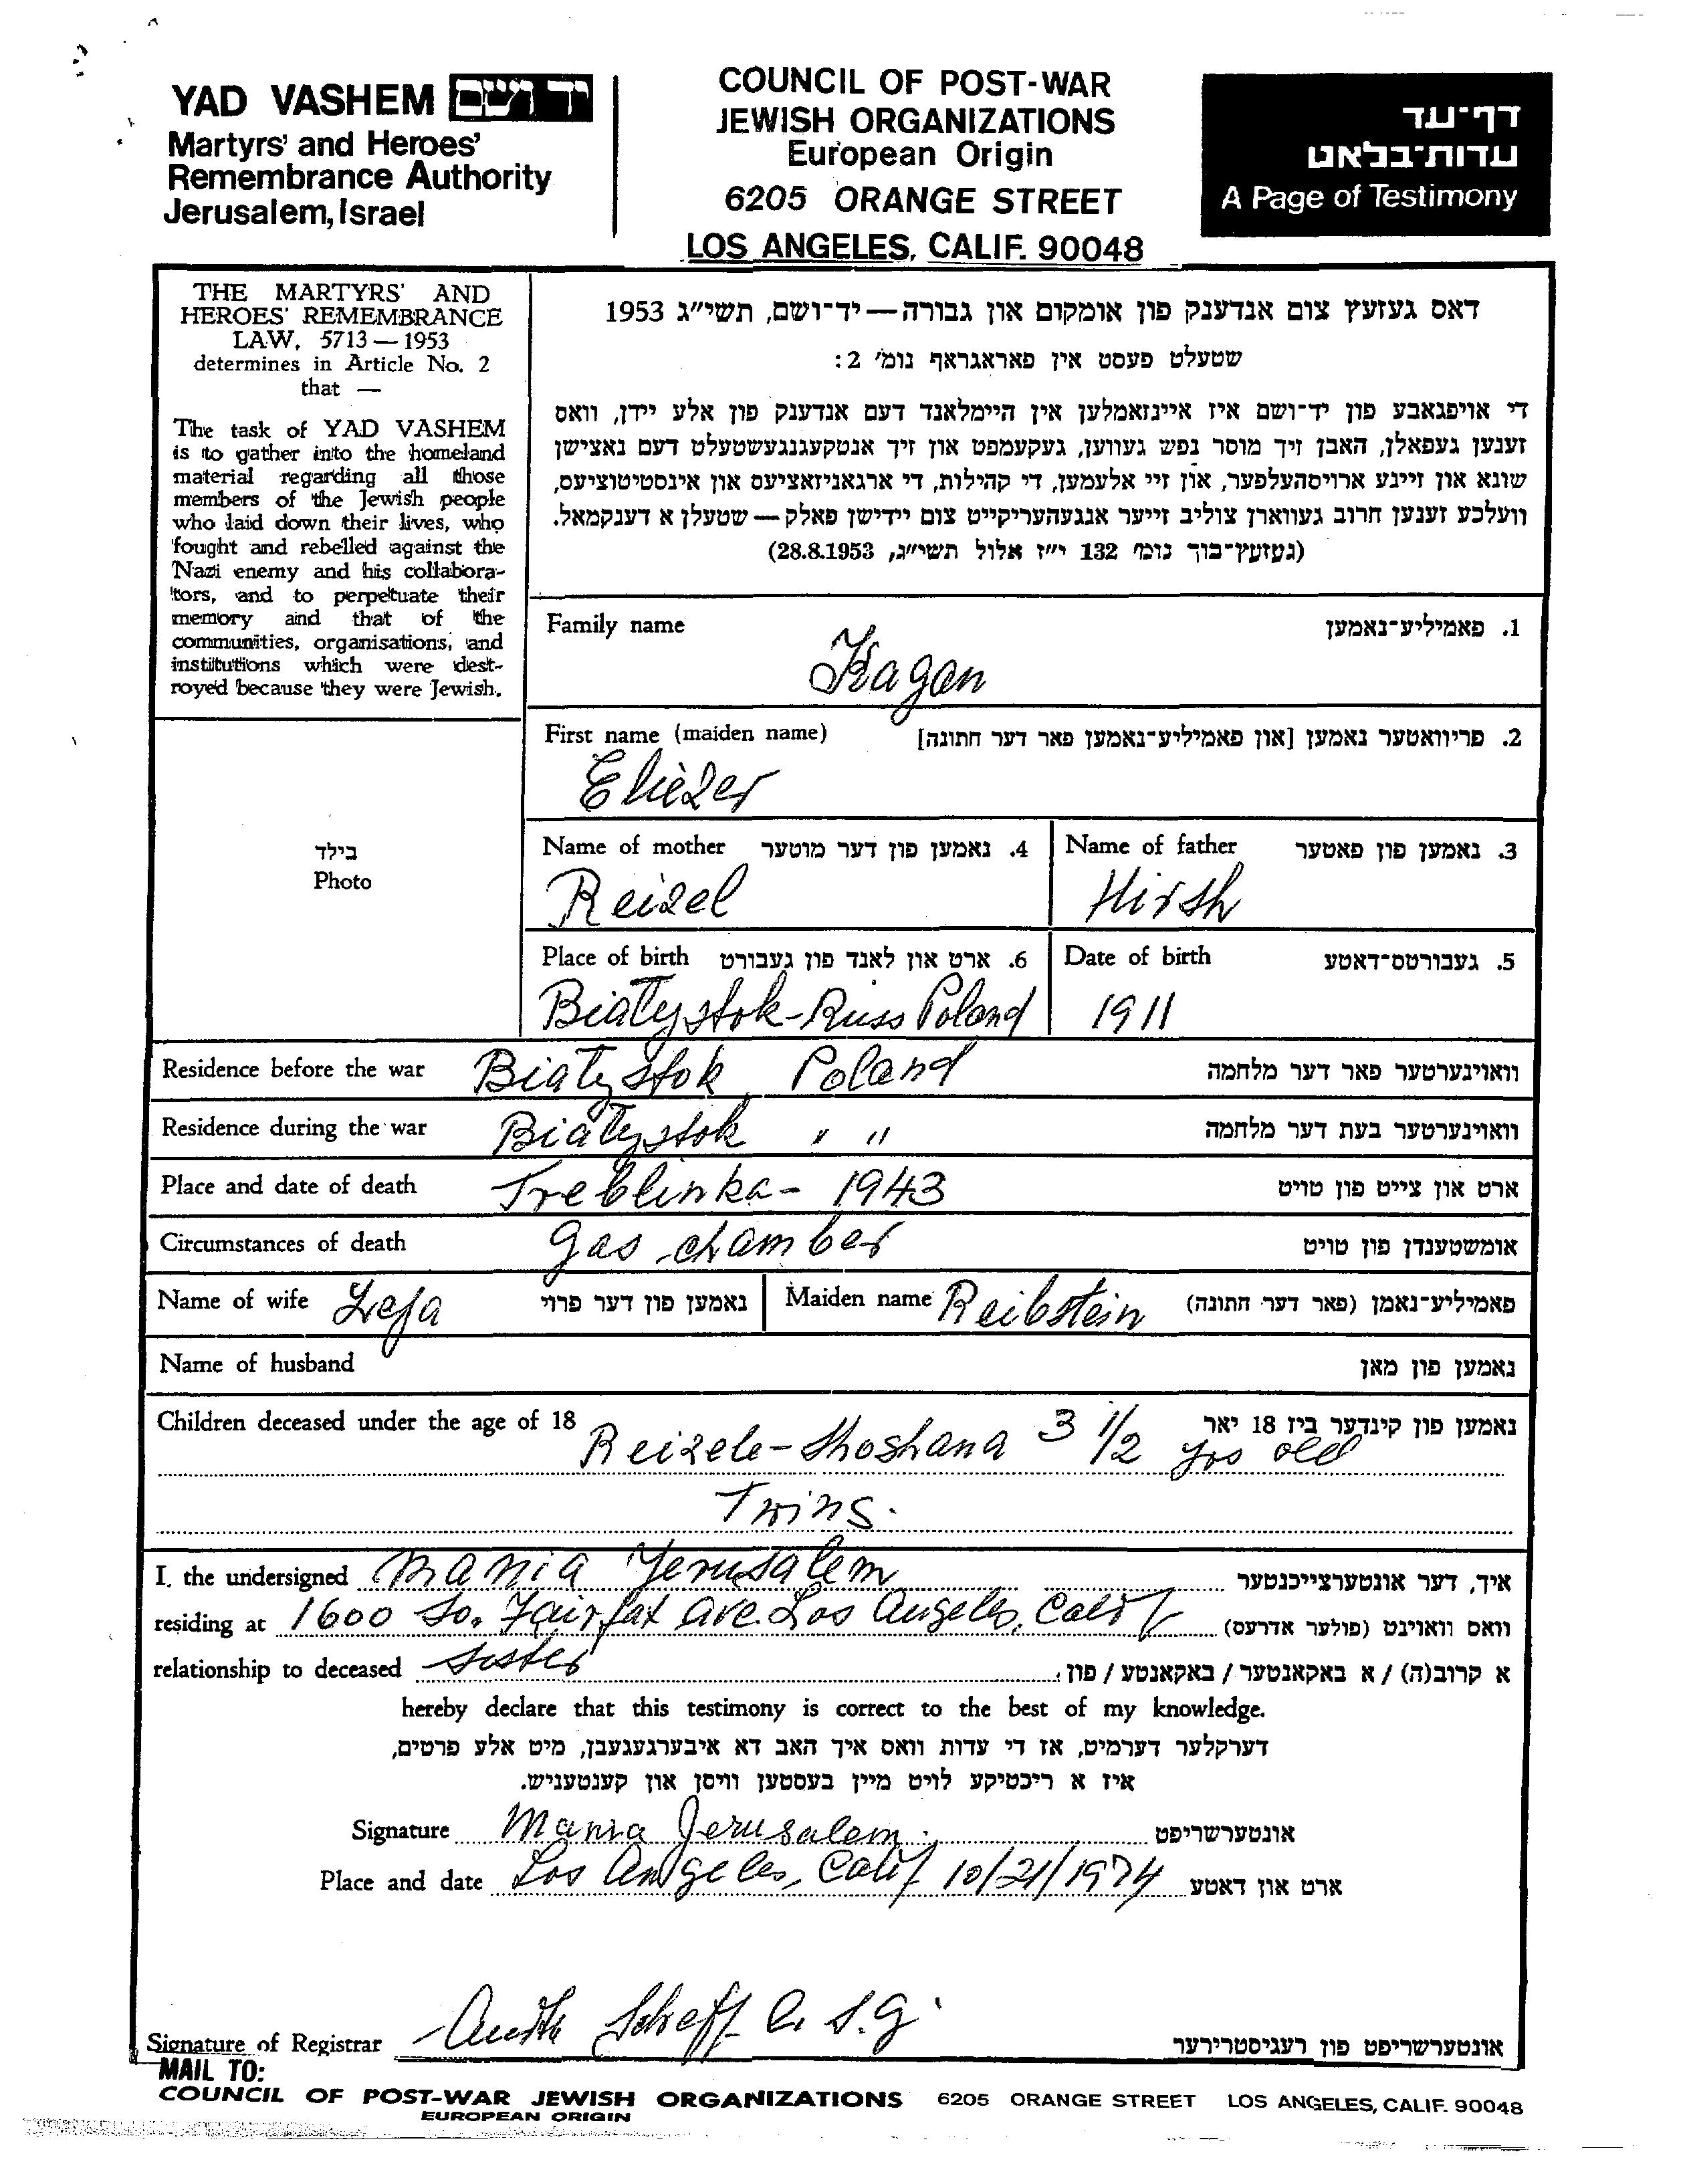 YAD VASHEM יד ושם
Martyrs' and Heroes'
Remembrance Authority
Jerusalem, Israel
COUNCIL OF POST-WAR
JEWISH ORGANIZATIONS
European Origin
6205 ORANGE STREET
LOS ANGELES, CALIF. 90048
דף-עד
עדות-בלאט
A Page of Testimony
THE MARTYRS' AND
HEROES' REMEMBRANCE
LAW, 5713 — 1953
determines in Article No. 2
that —
The task of YAD VASHEM
is to gather into the homeland
material regarding all those
members of the Jewish people
who laid down their lives, who
fought and rebelled against the
Nazi enemy and his collabora-
tors, and to perpetuate their
memory and that of the
communities, organisations, and
institutions which were dest-
royed because they were Jewish.
דאס געזעץ צום אנדענק פון אומקום און גבורה — יד-ושם, תשי"ג 1953
שטעלט פעסט אין פאראגראף נומ' 2:
די אויפגאבע פון יד-ושם איז איינזאמלען אין היימלאנד דעם אנדענק פון אלע יידן, וואס
זענען געפאלן, האבן זיך מוסר נפש געווען, געקעמפט און זיך אנטקעגנגעשטעלט דעם נאצישן
שונא און זיינע ארויסהעלפער, און זיי אלעמען, די קהילות, די ארגאניזאציעס און אינסטיטוציעס,
וועלכע זענען חרוב געווארן צוליב זייער אנגעהעריקייט צום יידישן פאלק — שטעלן א דענקמאל.
(געזעץ-בוך נומ' 132 י"ז אלול תשי"ג, 28.8.1953)
Family name Kagan 1. פאמיליע-נאמען
First name (maiden name) 2. פריוואטער נאמען [און פאמיליע-נאמען פאר דער חתונה]
Eliezer
Name of mother 4. נאמען פון דער מוטער
Reizel
Name of father 3. נאמען פון פאטער
Hirsh
Place of birth 6. ארט און לאנד פון געבורט
Białystok-Russ Poland
Date of birth 5. געבורטס-דאטע
1911
Residence before the war Białystok Poland וואוינערטער פאר דער מלחמה
Residence during the war Białystok " " וואוינערטער בעת דער מלחמה
Place and date of death Treblinka - 1943 ארט און צייט פון טויט
Circumstances of death gas chamber אומשטענדן פון טויט
Name of wife Leja נאמען פון דער פרוי Maiden name Reibstein פאמיליע-נאמן (פאר דער חתונה)
Name of husband נאמען פון מאן
Children deceased under the age of 18 נאמען פון קינדער ביז 18 יאר
Reizele-Shoshana 3 1/2 yrs old
Twins.
I, the undersigned Mania Jerusalem איך, דער אונטערצייכנטער
residing at 1600 So. Fairfax ave. Los Angeles, Calif וואס וואוינט (פולער אדרעס)
relationship to deceased sister א קרוב(ה) / א באקאנטער / באקאנטע / פון
hereby declare that this testimony is correct to the best of my knowledge.
דערקלער דערמיט, אז די עדות וואס איך האב דא איבערגעגעבן, מיט אלע פרטים,
איז א ריכטיקע לויט מיין בעסטען וויסן און קענטעניש.
Signature Mania Jerusalem. אונטערשריפט
Place and date Los Angeles, Calif 10/21/1974 ארט און דאטע
Signature of Registrar אונטערשריפט פון רעגיסטרירער
MAIL TO:
COUNCIL OF POST-WAR JEWISH ORGANIZATIONS 6205 ORANGE STREET LOS ANGELES, CALIF. 90048
EUROPEAN ORIGIN